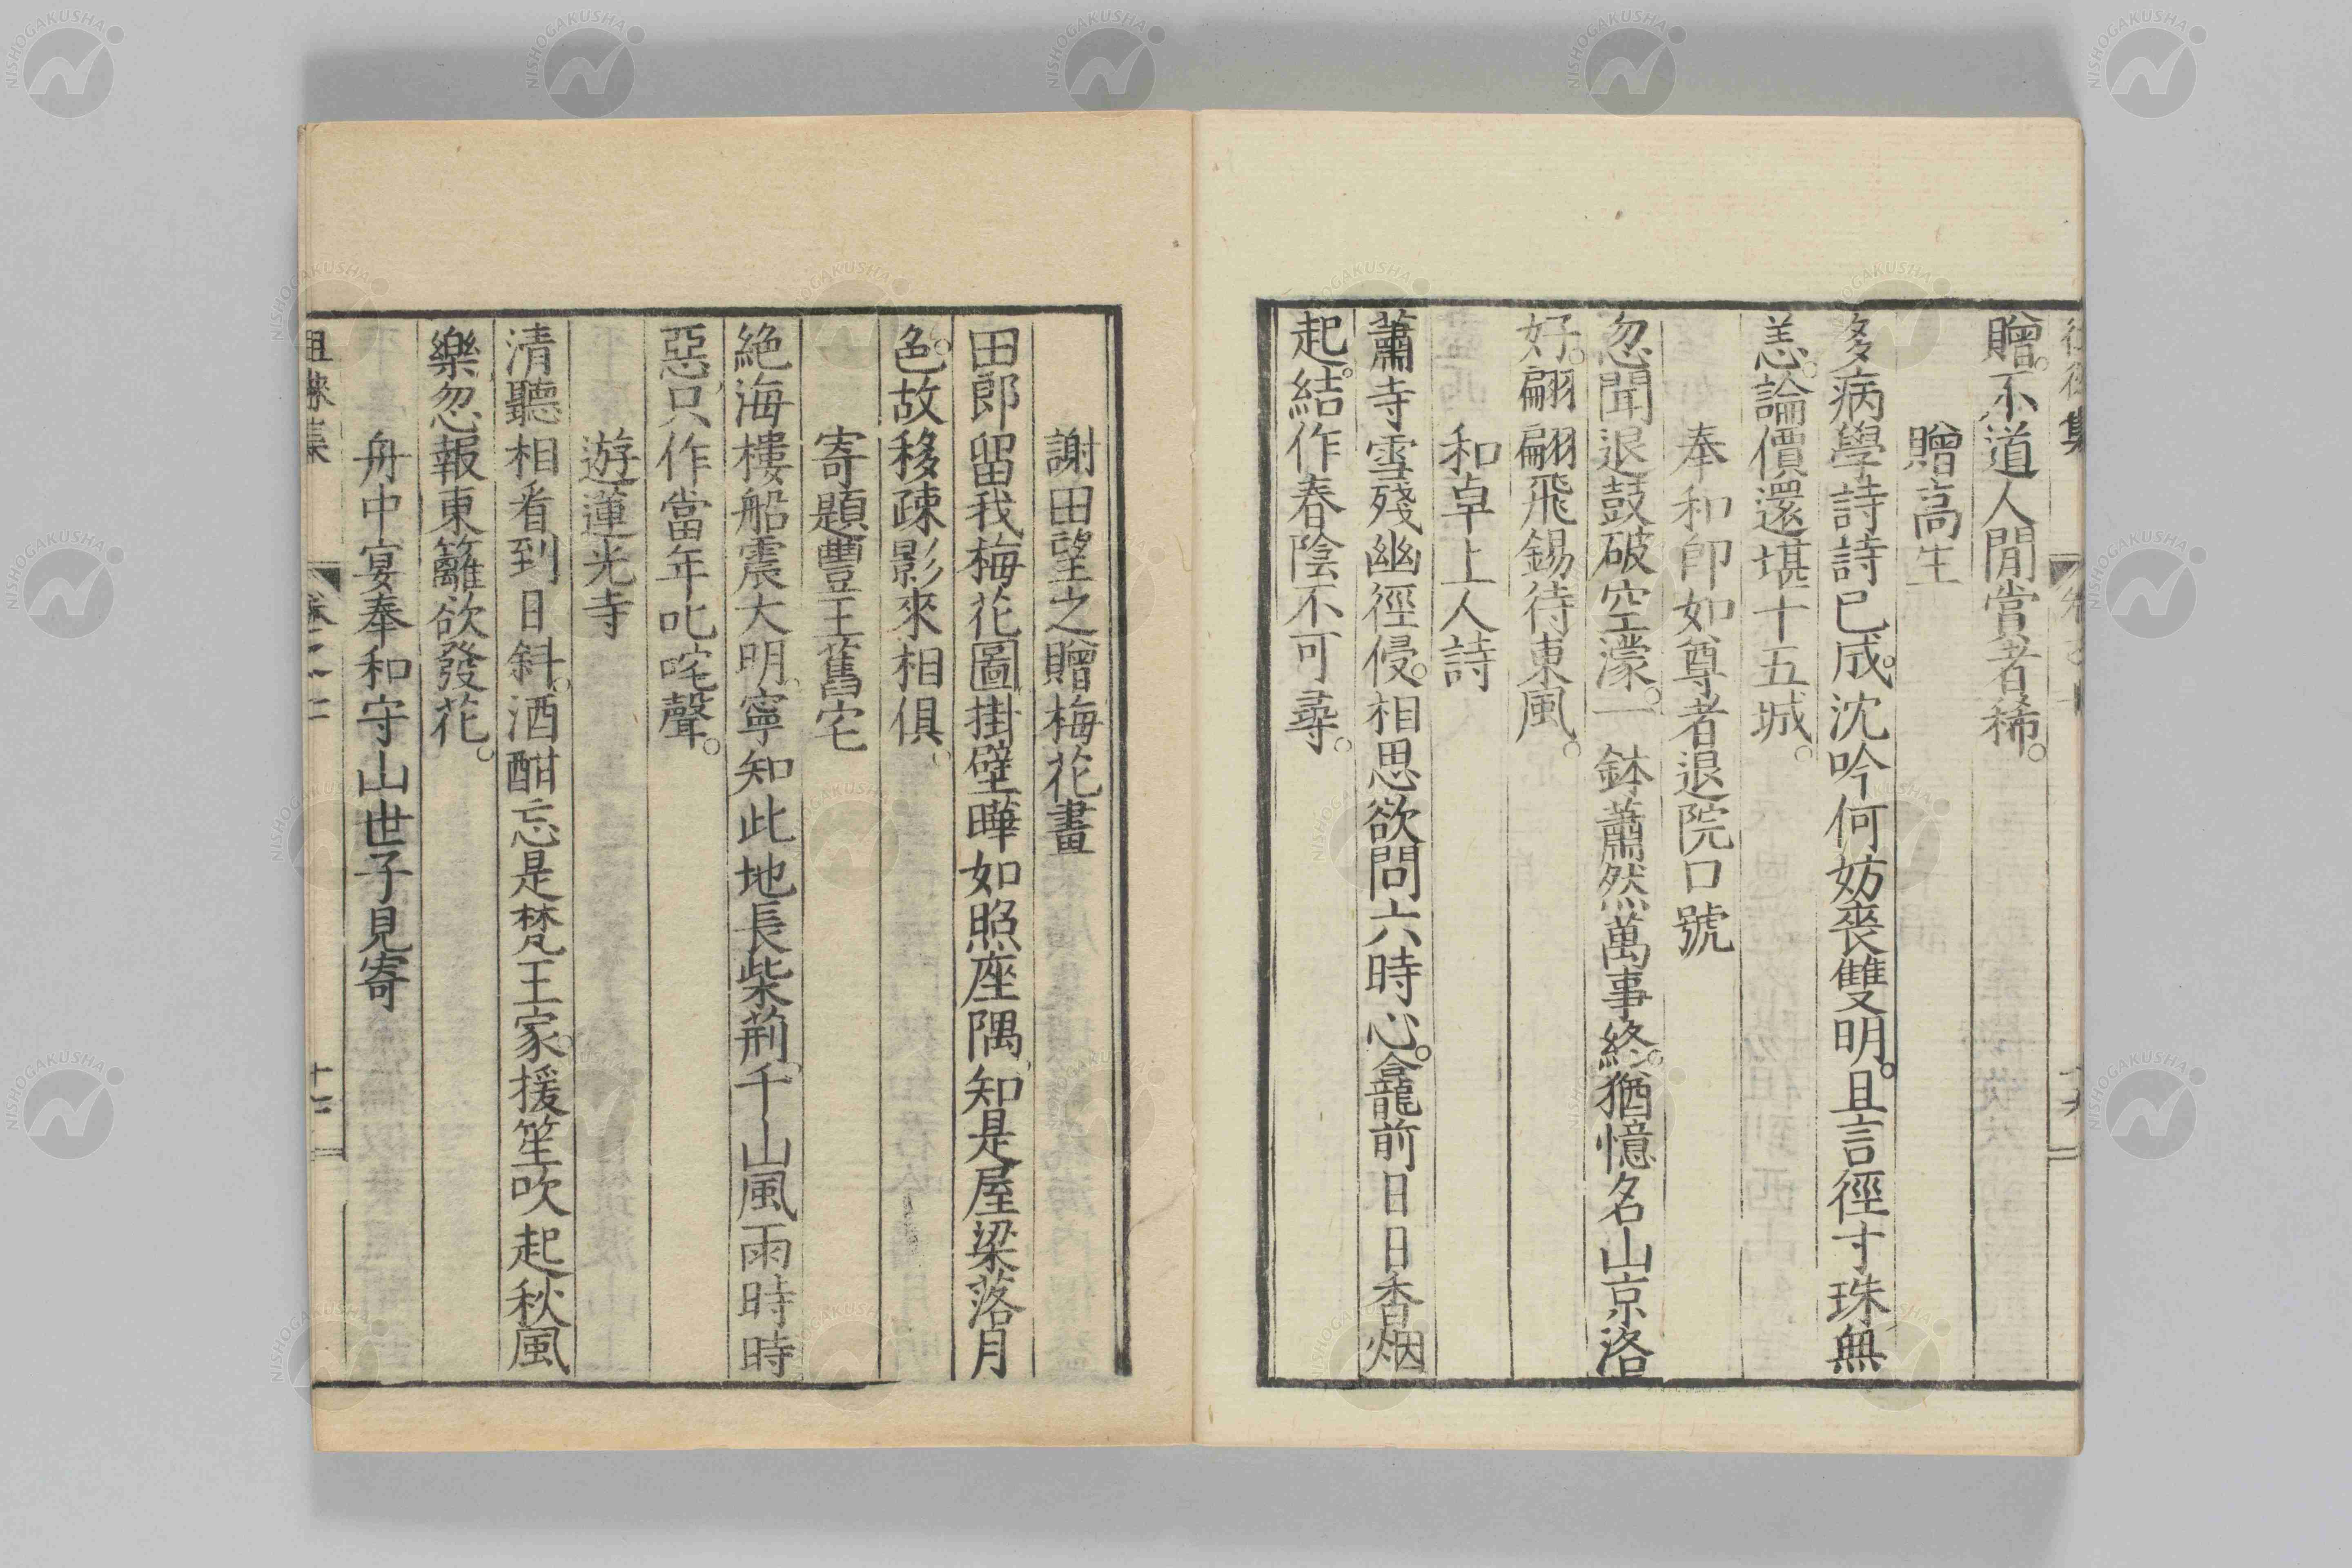 贈。不道人間當者稀。
贈高生
多病學詩詩已成。沈吟何妨喪雙明。且言徑寸珠無
恙。論價還堪十五城。
奉和卽如尊者退院口號
忽聞退鼓破空濛。一鉢蕭然萬事終。猶憶名山京洛
好。翩翩飛錫待東風。
和卓上人詩
蕭寺雪殘幽徑侵。相思欲問六時心。龕前日日香烟
起。結作春陰不可尋。
謝田望之贈梅花畫
田郎留我梅花圖。掛壁曄如照座隅。知是屋梁落月
色。故移疎影來相俱。
寄題豐王舊宅
絶海樓船震大明。寧知此地長柴荊。千山風雨時時
惡。只作當年叱咤聲。
遊蓮光寺
清聽相看到日斜。酒酣忘是梵王家。援笙吹起秋風
樂。忽報東籬欲發花。
舟中宴奉和守山世子見寄
徂徠集
卷之二
NISHOGAKUSHA